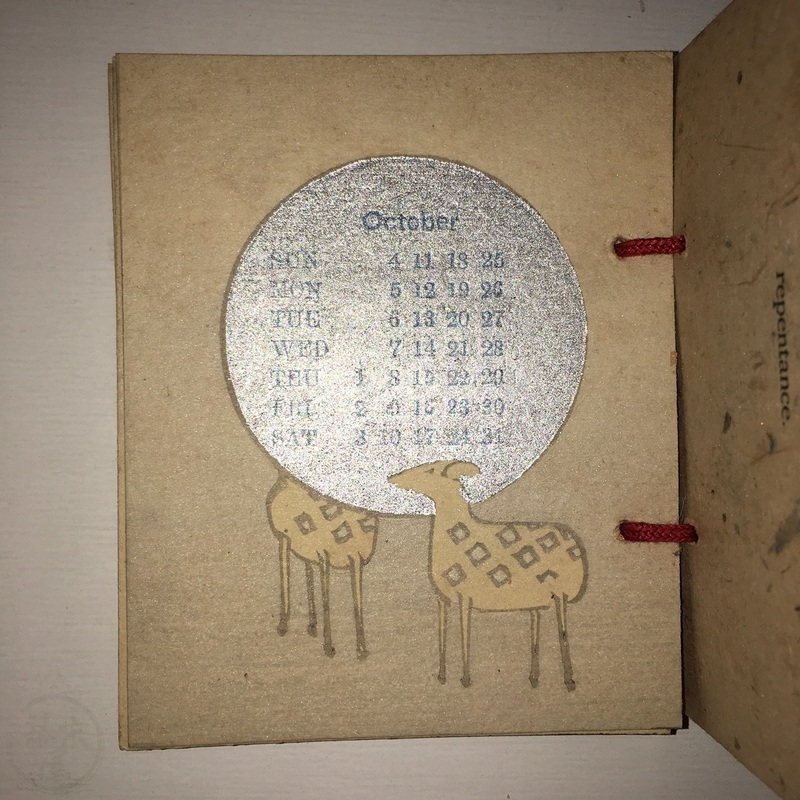 October
SUN 4 11 18 25
MON 5 12 19 26
TUE 6 13 20 27
WED 7 14 21 28
THU 1 8 15 22 29
FRI 2 9 16 23 30
SAT 3 10 17 24 31
repentance.